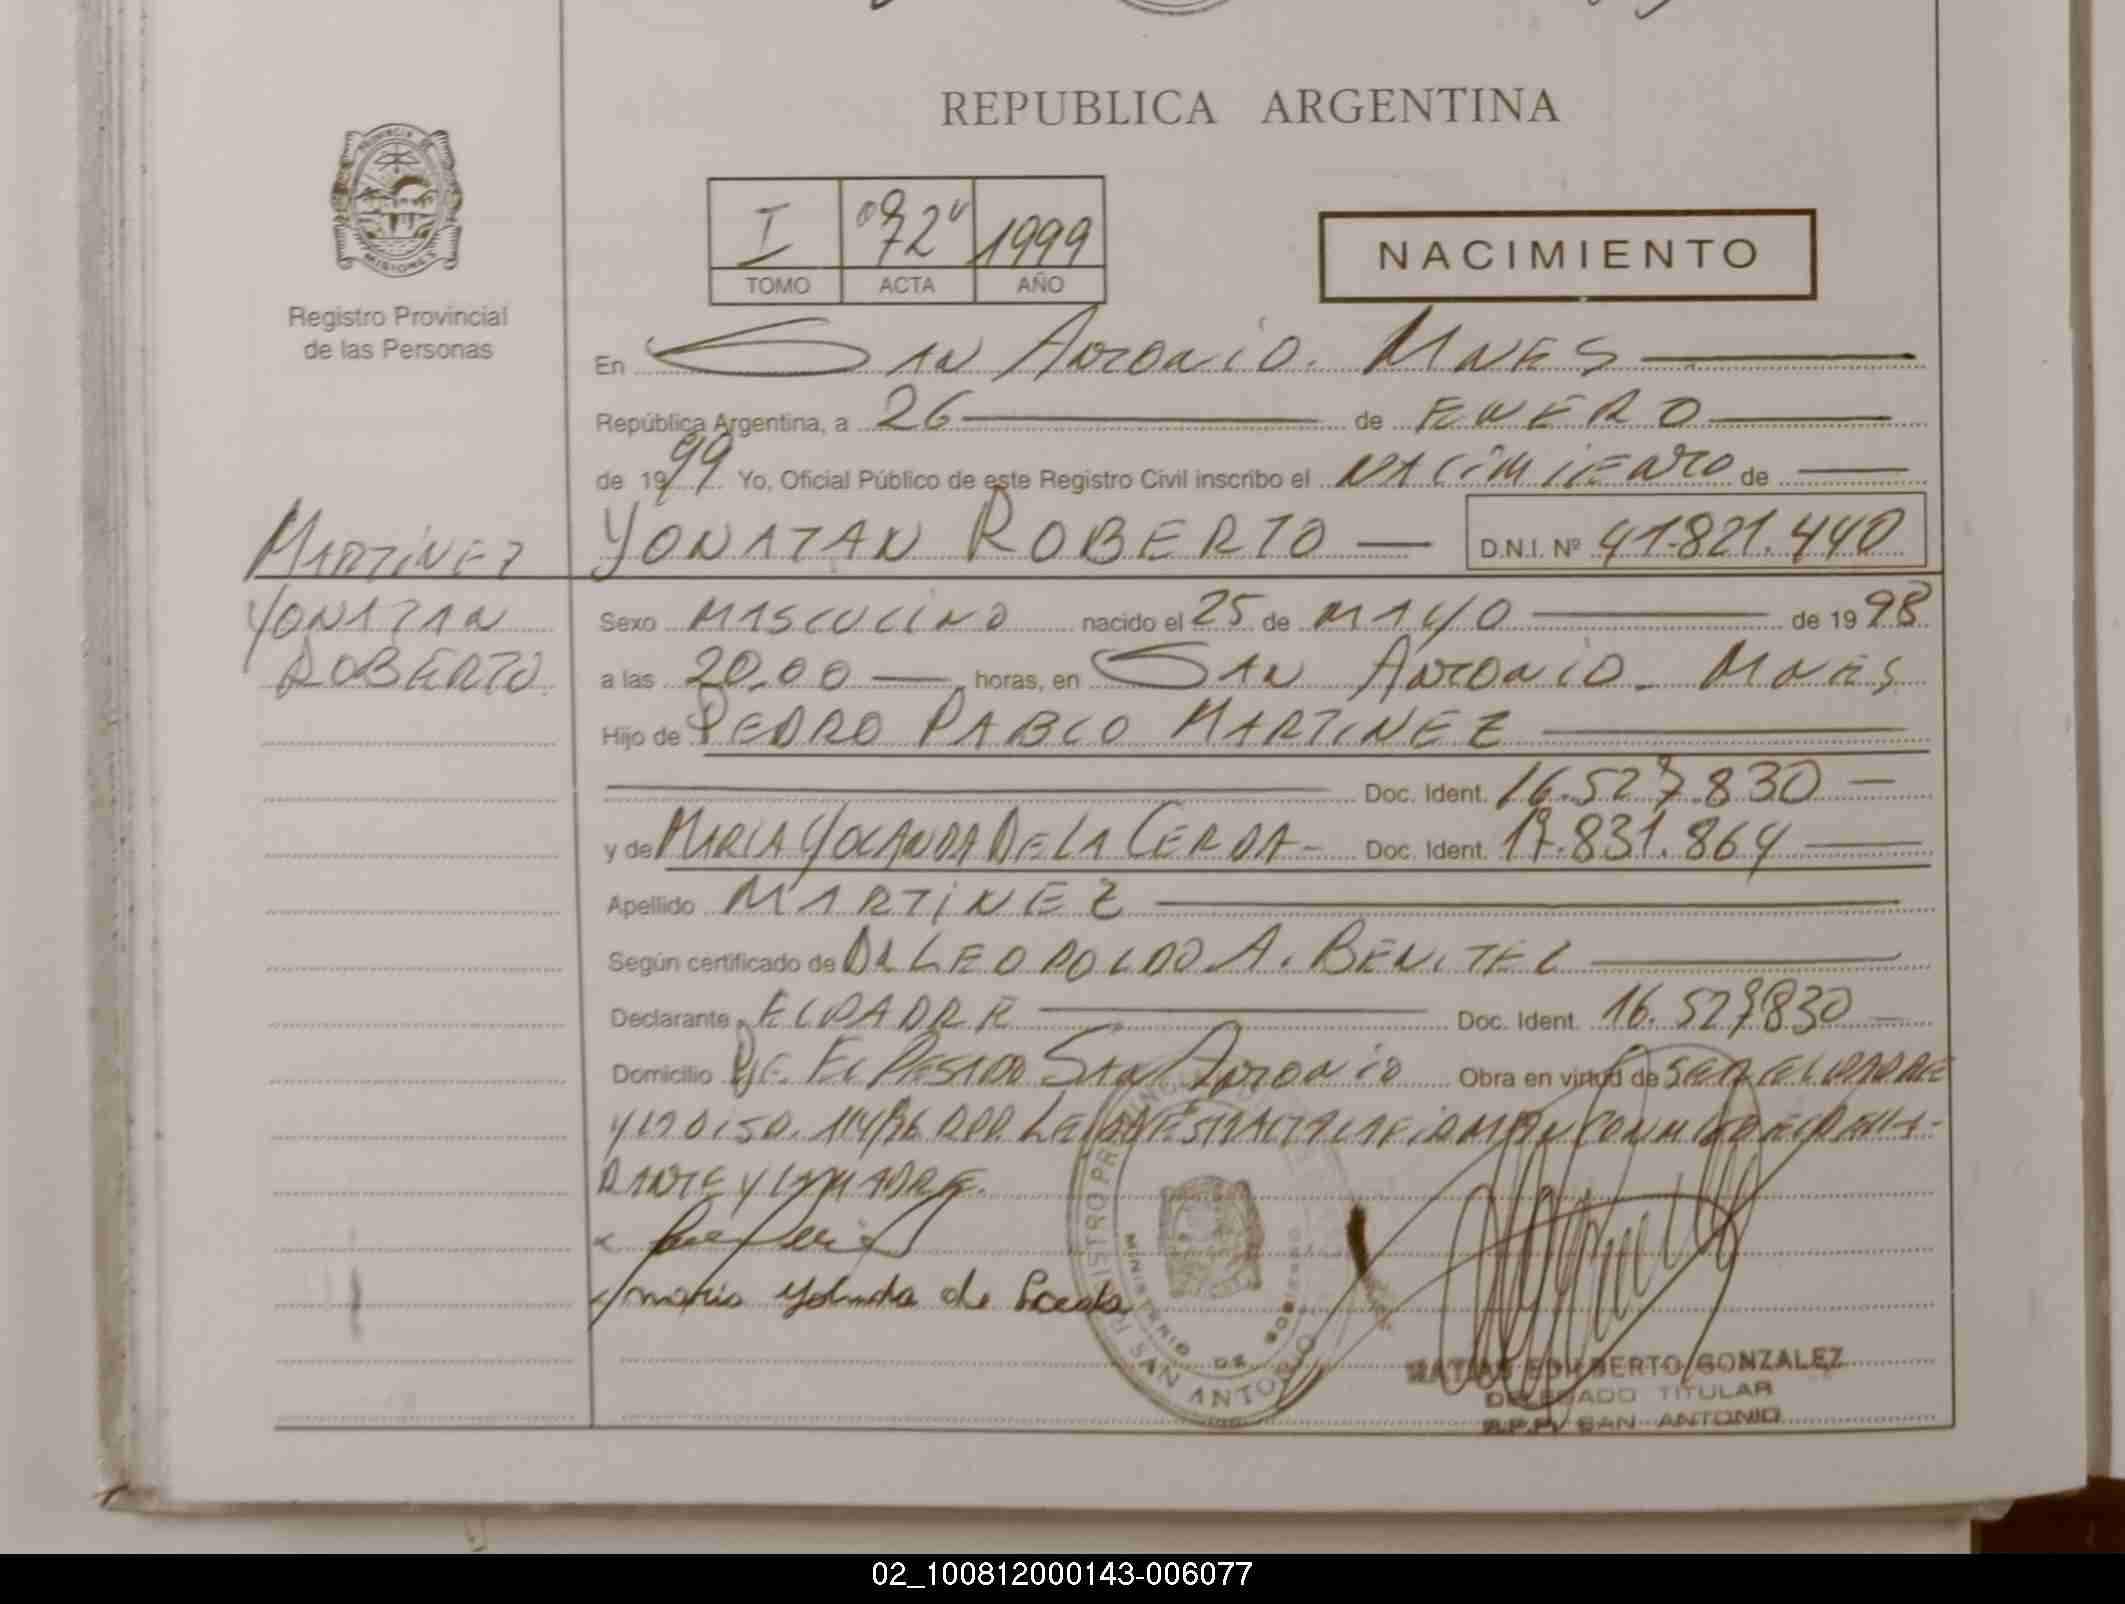 REPUBLICA ARGENTINA
PROVINCIA DE
MISIONES
Registro Provincial
de las Personas
I "72" 1999
TOMO ACTA AÑO
NACIMIENTO
En SAN ANTONIO. MNES
República Argentina, a 26 de ENERO
de 1999 Yo, Oficial Público de este Registro Civil inscribo el NACIMIENTO de
MARTINEZ
YONATAN ROBERTO
YONATAN ROBERTO D.N.I. Nº 41.821.440
Sexo MASCULINO nacido el 25 de MAYO de 1998
a las 20.00 horas, en SAN ANTONIO - MNES
Hijo de PEDRO PABLO MARTINEZ
Doc. Ident. 16.527.830
y de MARIA YOLANDA DE LA CERDA - Doc. Ident. 17.831.864
Apellido MARTINEZ
Según certificado de DR LEOPOLDO A. BENITEZ
Declarante EL PADRE Doc. Ident. 16.527830
Domicilio PJE. EL PESADO SAN ANTONIO Obra en virtud de SER EL PADRE
Y LA DISP. 114/96 RPP. LEIDA EL ACTA LA FIRMAN CONMIGO EL DECLA-
RANTE Y LA MADRE.
maria Yolanda de la Cerda
REGISTRO PROVINCIAL
MINISTERIO DE GOBIERNO
SAN ANTONIO
MATIAS EDILBERTO GONZALEZ
DELEGADO TITULAR
R.P.P. SAN ANTONIO
02_100812000143-006077